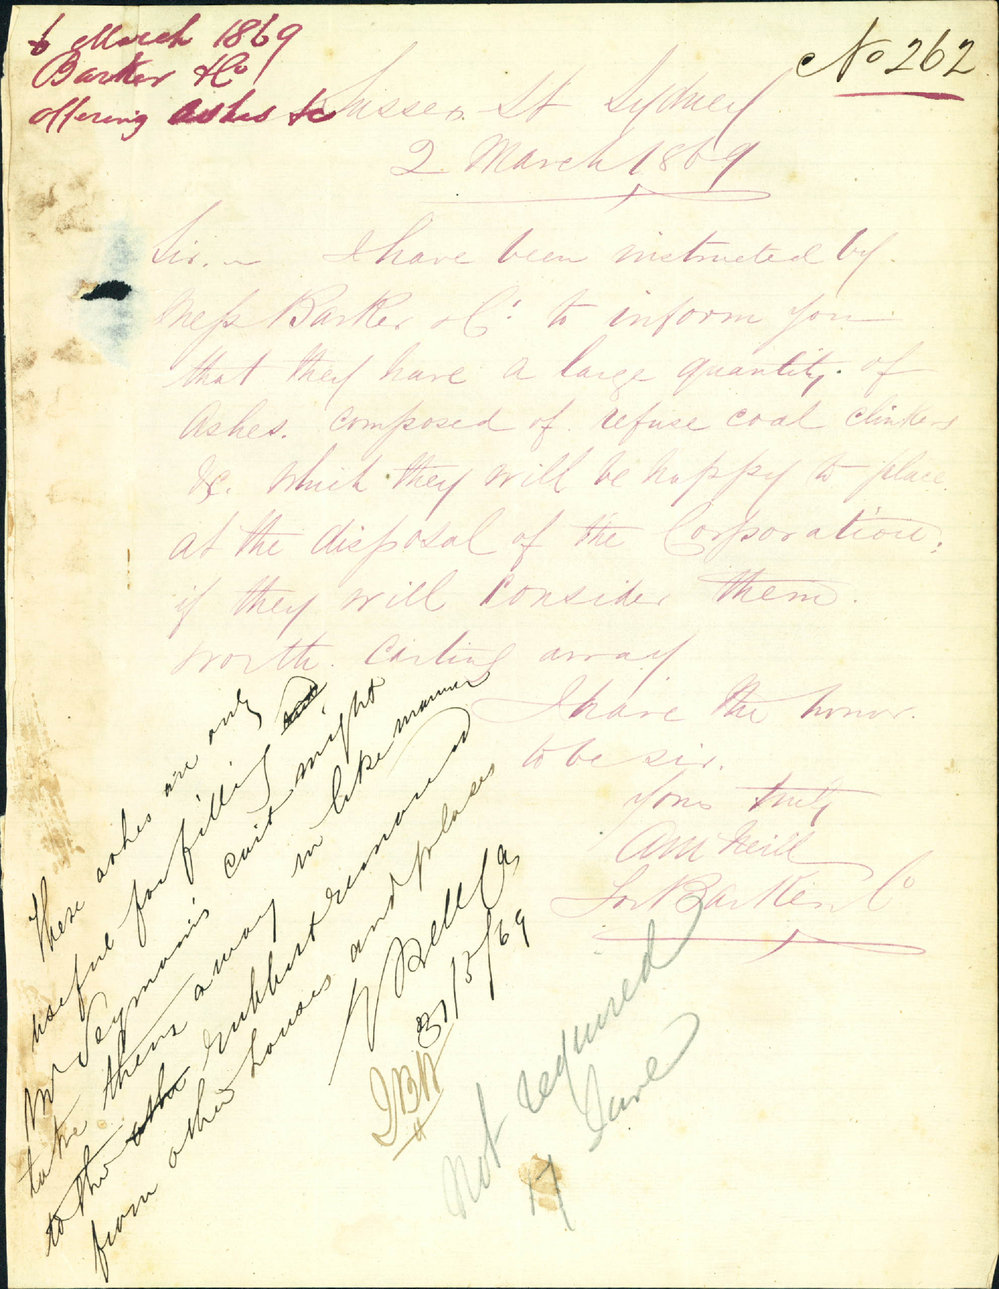 6 March 1869
Barker & Co
offering ashes &c
No 262
Sussex St Sydney
2 March 1869
Sir. I have been instructed by
Mess Barker & Co to inform you
that they have a large quantity of
Ashes. composed of refuse coal clinkers
&c. which they will be happy to place
at the disposal of the Corporation,
if they will consider them
worth carting away
I have the honor.
to be sir.
yours truly
A M Neill
For Barker & Co
These ashes are only
useful for filling and
Mr Seymour's cart might
take them away in like manner
to the other rubbish removed
from other houses and places
E Bell CE
31/3/69
Not required
17 June